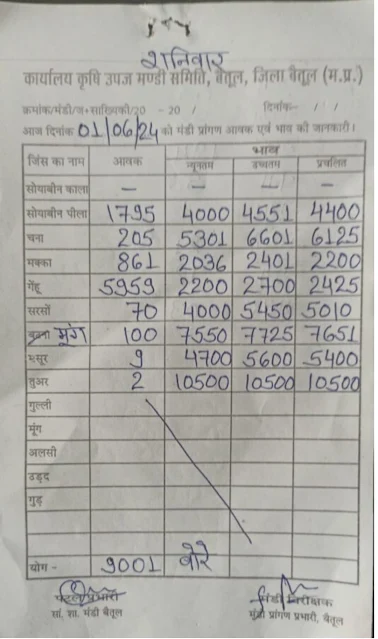 शनिवार
कार्यालय कृषि उपज मण्डी समिति, बैतूल, जिला बैतूल (म.प्र.)
क्रमांक/मंडी/ज+साख्यिकी/20 - 20 / दिनांक- / /
आज दिनांक 01/06/24 को मंडी प्रांगण आवक एवं भाव की जानकारी।
जिंस का नाम आवक भाव
न्यूनतम उच्चतम प्रचलित
सोयाबीन काला — — — —
सोयाबीन पीला 1795 4000 4551 4400
चना 205 5301 6601 6125
मक्का 861 2036 2401 2200
गेंहू 5959 2200 2700 2425
सरसों 70 4000 5450 5010
मूंग 100 7550 7725 7651
मसूर 9 4700 5600 5400
तुअर 2 10500 10500 10500
गुल्ली
मूंग
अलसी
उड़द
गुड़
योग - 9001 बोरे
मंडी निरीक्षक
सां. शा. मंडी बैतूल मंडी प्रांगण प्रभारी, बैतूल